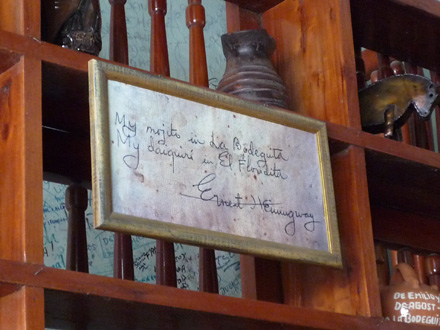 My mojito in La Bodeguita
My daiquiri in El Floridita
Ernest Hemingway
DE EMILIO
DE AGOST
a la BODEGUI